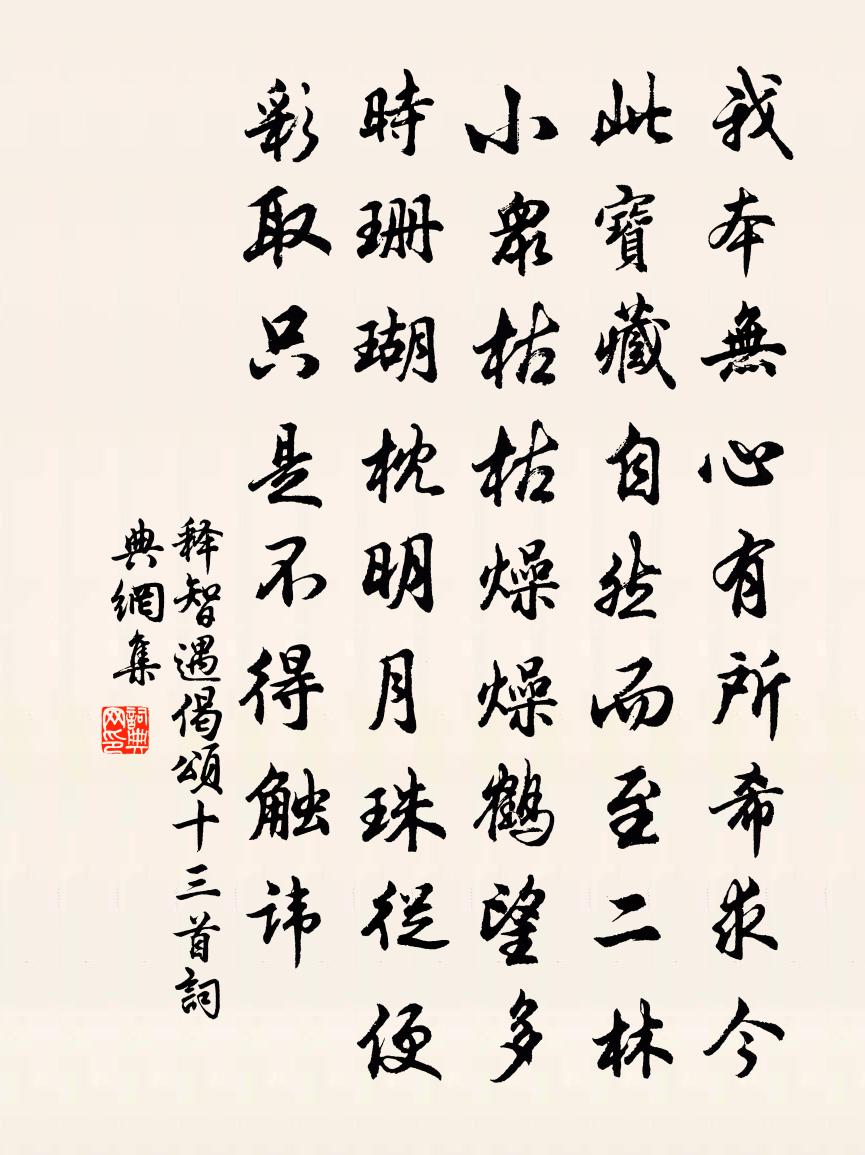 我本無心有所希求今
此寶藏自然而至二林
小眾枯枯燥燥鶴望多
時珊瑚枕明月珠從便
彩取只是不得触讳
释智遇偈頌十三首詞
典網集
詞典
网印